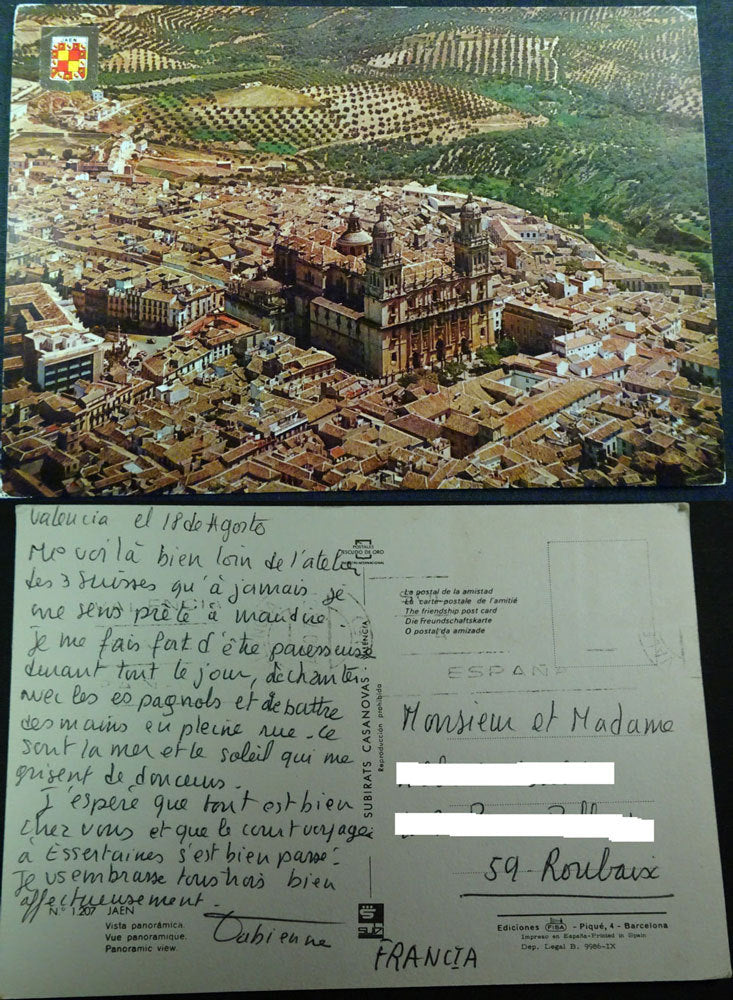 JAEN
Valencia el 18 de Agosto
Me voilà bien loin de l'atelier
des 3 Suisses qu'à jamais je
me sens prête à maudire.
Je me fais fort d'être paresseuse
durant tout le jour, de chanter
avec les espagnols et de battre
des mains en pleine rue. Ce
sont la mer et le soleil qui me
grisent de douceurs.
J'espère que tout est bien
chez vous et que le court voyage
à Essertaines s'est bien passé.
Je vs embrasse tous trois bien
affectueusement.
Fabienne
Nº 1.207 JAEN
Vista panorámica.
Vue panoramique.
Panoramic view.
POSTALES
ESCUDO DE ORO
SUBIRATS CASANOVAS VALENCIA
Reproducción prohibida
La postal de la amistad
La carte postale de l'amitié
The friendship post card
Die Freundschaftskarte
O postal da amizade
ESPAÑA
Monsieur et Madame
59 - Roubaix
FRANCIA
Ediciones FISA - Piqué, 4 - Barcelona
Impreso en España-Printed in Spain
Dep. Legal B. 9986-IX